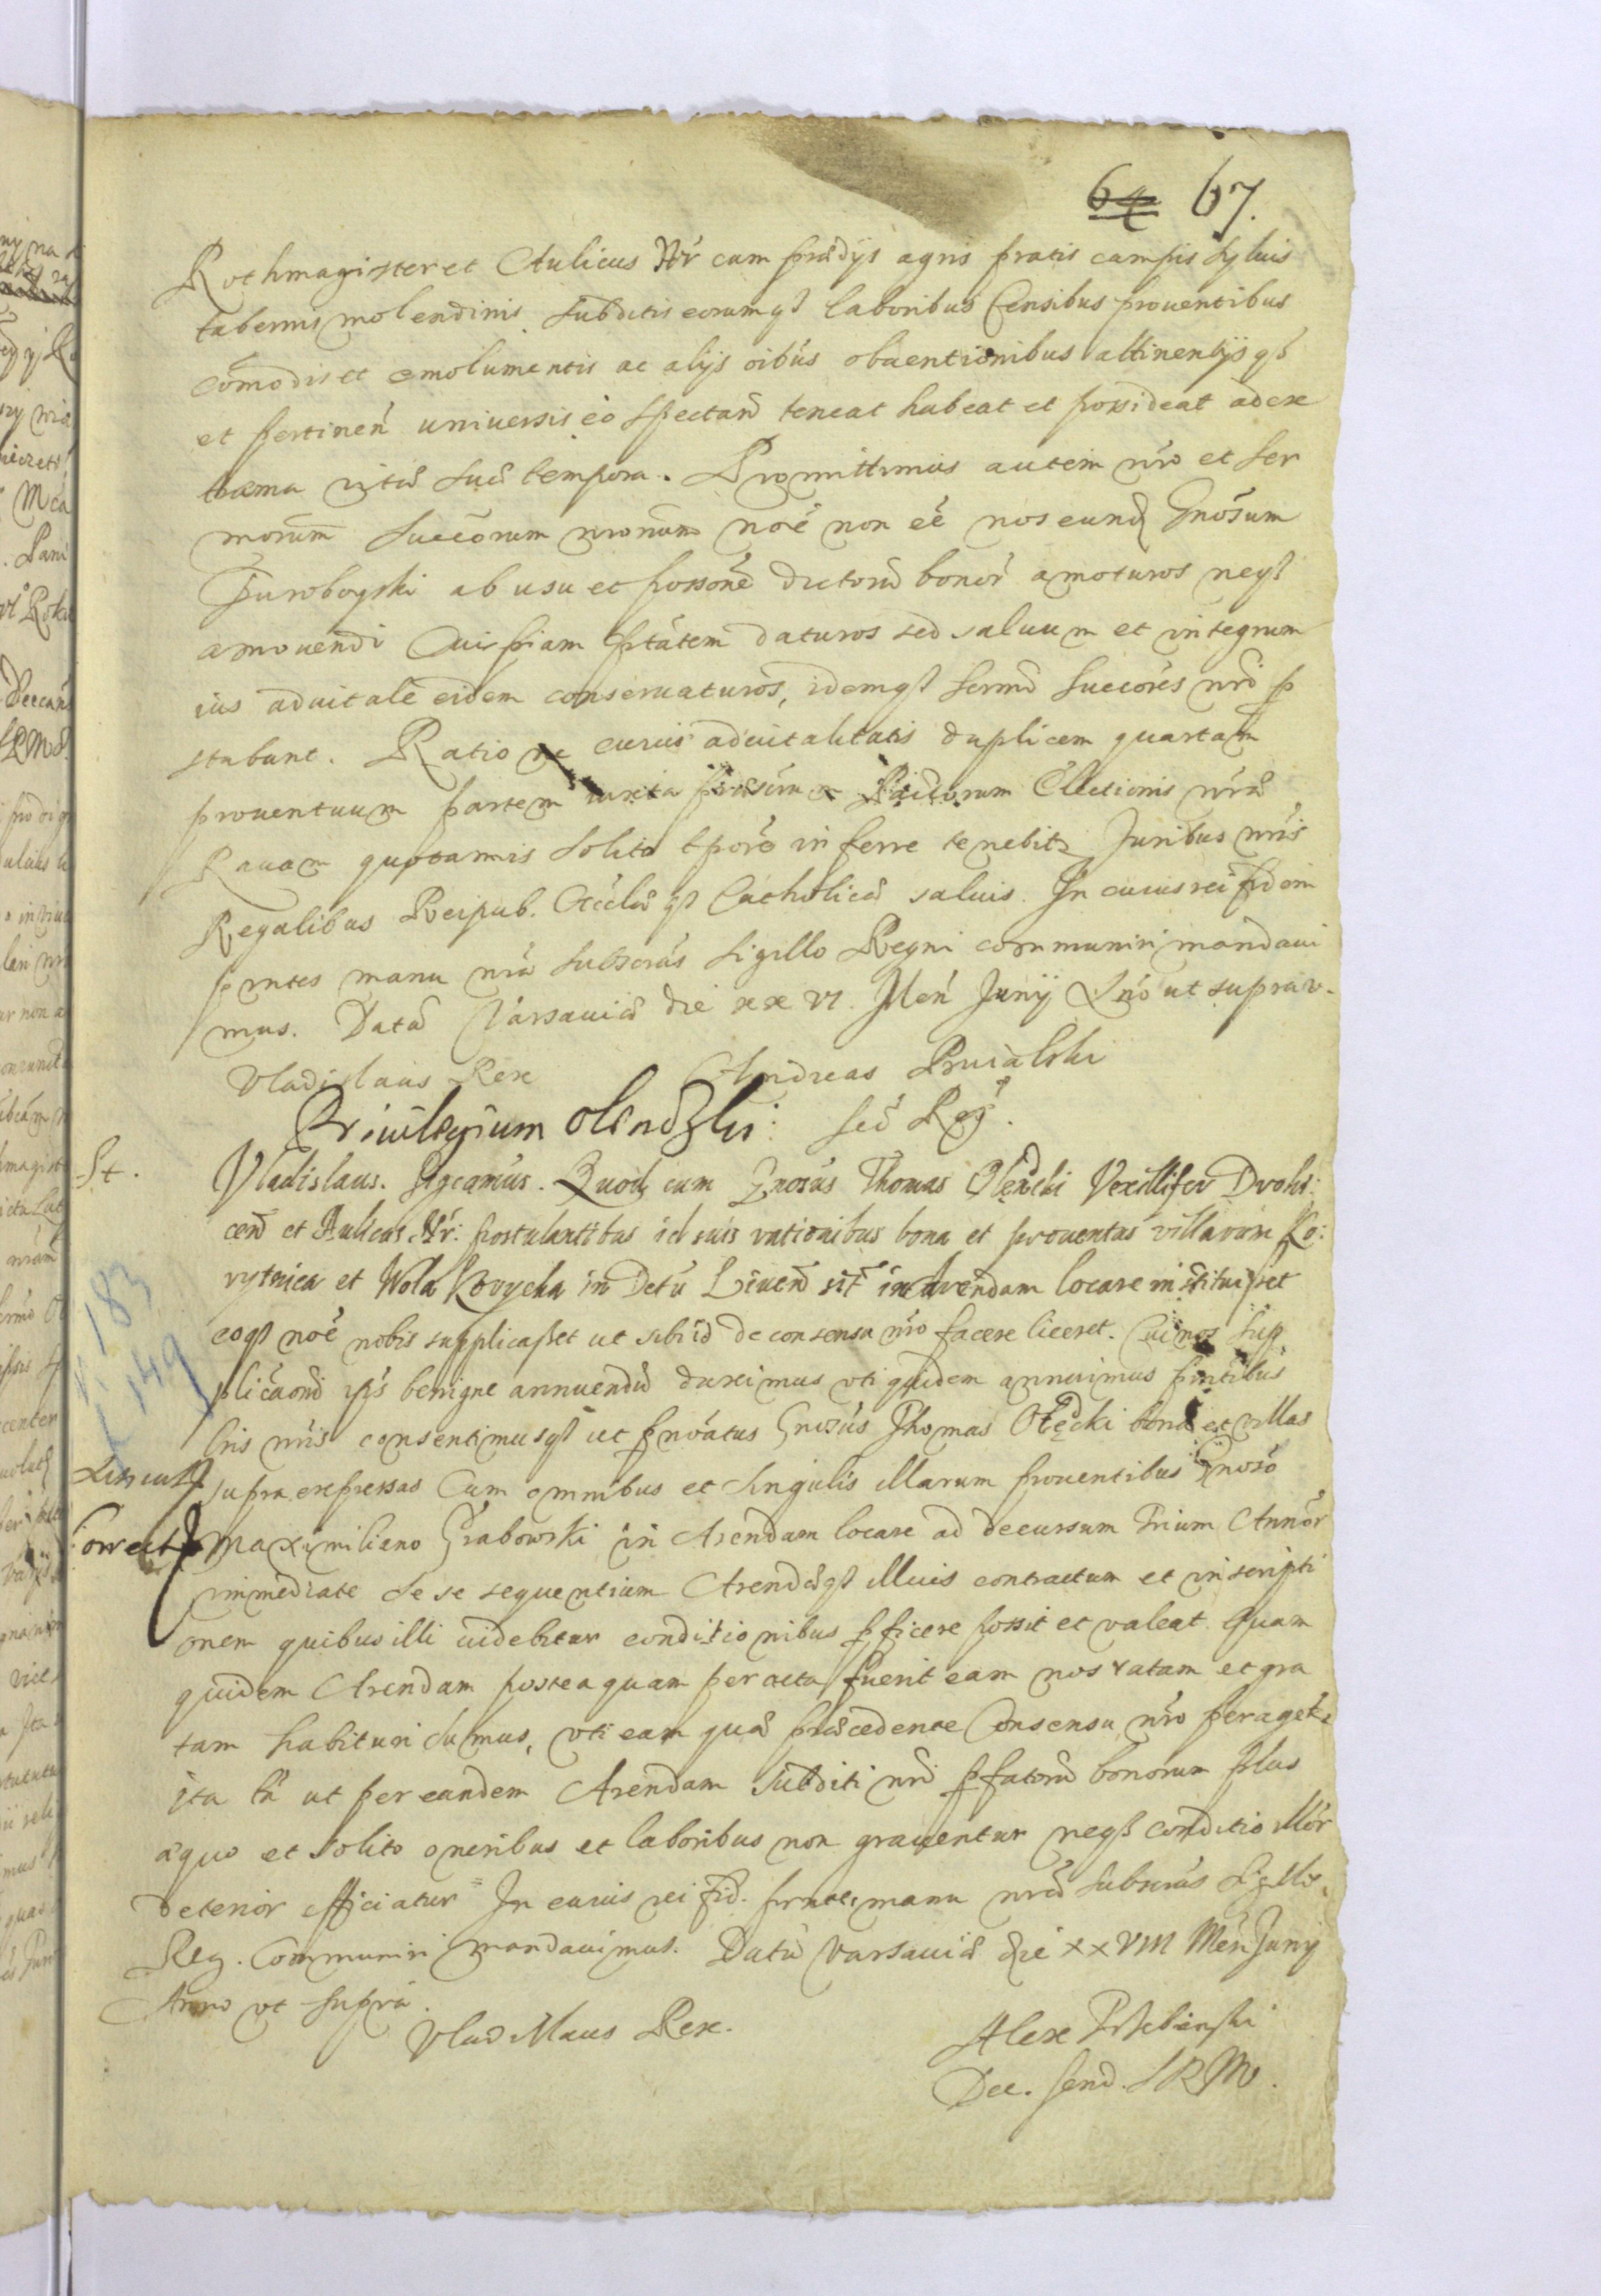 64 67.
Rothmagister et Aulicus Nr̃ cum prædijs agris pratis campis syluis
tabernis molendinis subditis eorumqꝫ laboribus Censibus prouentibus
com̃odis et emolumentis ac alijs oib́us obuentionibus attinentijsqꝫ
et pertineñ uniuersis eò spectañ teneat habeat et possideat ad ex
træma vitæ suæ tempora. Promittimus autem nr̃o et Ser
morum̃ Succ̃orum nr̃orum noẽ non eẽ nos eundꝫ Gnõsum
ab usu et possonẽ dictorũ bonor̃ amoturos neqꝫ
amouendi Cuipiam ptãtem daturos sed saluum et integrum
ius aduitale eidem conseruaturos, idemqꝫ Sermĩ Succõres nr̃i p
stabunt. Ratione cuius aduitalitatis duplicem quartam
prouentuum partem iuxta Pactorum Electionis nr̃æ
Rauam quotannis solito tp̃ore inferre tenebitꝛ Juribus nr̃is
Regalibus Reipub. Ecc̃læqꝫ Catholicæ saluis. In cuius rei fidem
p̃ntes manu nr̃a subscrãs Sigillo Regni communiri mandaui
mus. Datũ Varsauiæ die xxvi. Meñ Junij Añо ut supra
Vladislaus Rex Andreas
Priuilegium Olendzki: Secr̃ Reg.
St. Vladislaus. Sigcamus. Quod cum Gnosus Thomas Olendcki Vexillifer Drohi:
ceñ et Aulicus Nr̃: postulantibus id suis rationibus bona et prouentus villarum Ko:
rytnica et Wola Korycka in Dctũ Liueñ sit̃ in Arendam locare instituisset
eoqꝫ noẽ nobis supplicasset ut sibi id de consensu nr̃o facere liceret. Cui nos sup
plicãoni ip̃s benigne annuendũ duximus uti quidem annuimus p̃ntibus
lris nr̃is consentimusqꝫ ut p̃noãtus Gnosus Thomas Olędcki bona et villas
supra expressas Cum omnibus et singulis illarum prouentibus Gnoso
Correct Maximiliano Grabowski in Arendam locare ad decursum Trium Annor̃
immediate se se sequentium Arendæqꝫ illius contractum et inscripti
onem quibus illi uidebitur conditionibus pficere possit et valeat. Quam
quidem Arendam posteaquam peracta fuerit eam nos ratam et gra
tam habituri sumus, vti eam quæ præcedente Consensu nr̃o perageť
ita tñ ut per eandem Arendam subditi nr̃i p̃fatorũ bonorum plus
æquo et solito oneribus et laboribus non grauentur neqꝫ conditio illor̃
deterior efficiatur In cuius rei fid. p̃ntes manu nr̃a subscrãs Sigillo
Reg. Communiri mandauimus. Datũ Varsauiæ die xxVIII Meñ Junij
Anno vt supra.
Vladislaus Rex. Alex Trzebinski
Dec. Send. S R M.
183
149